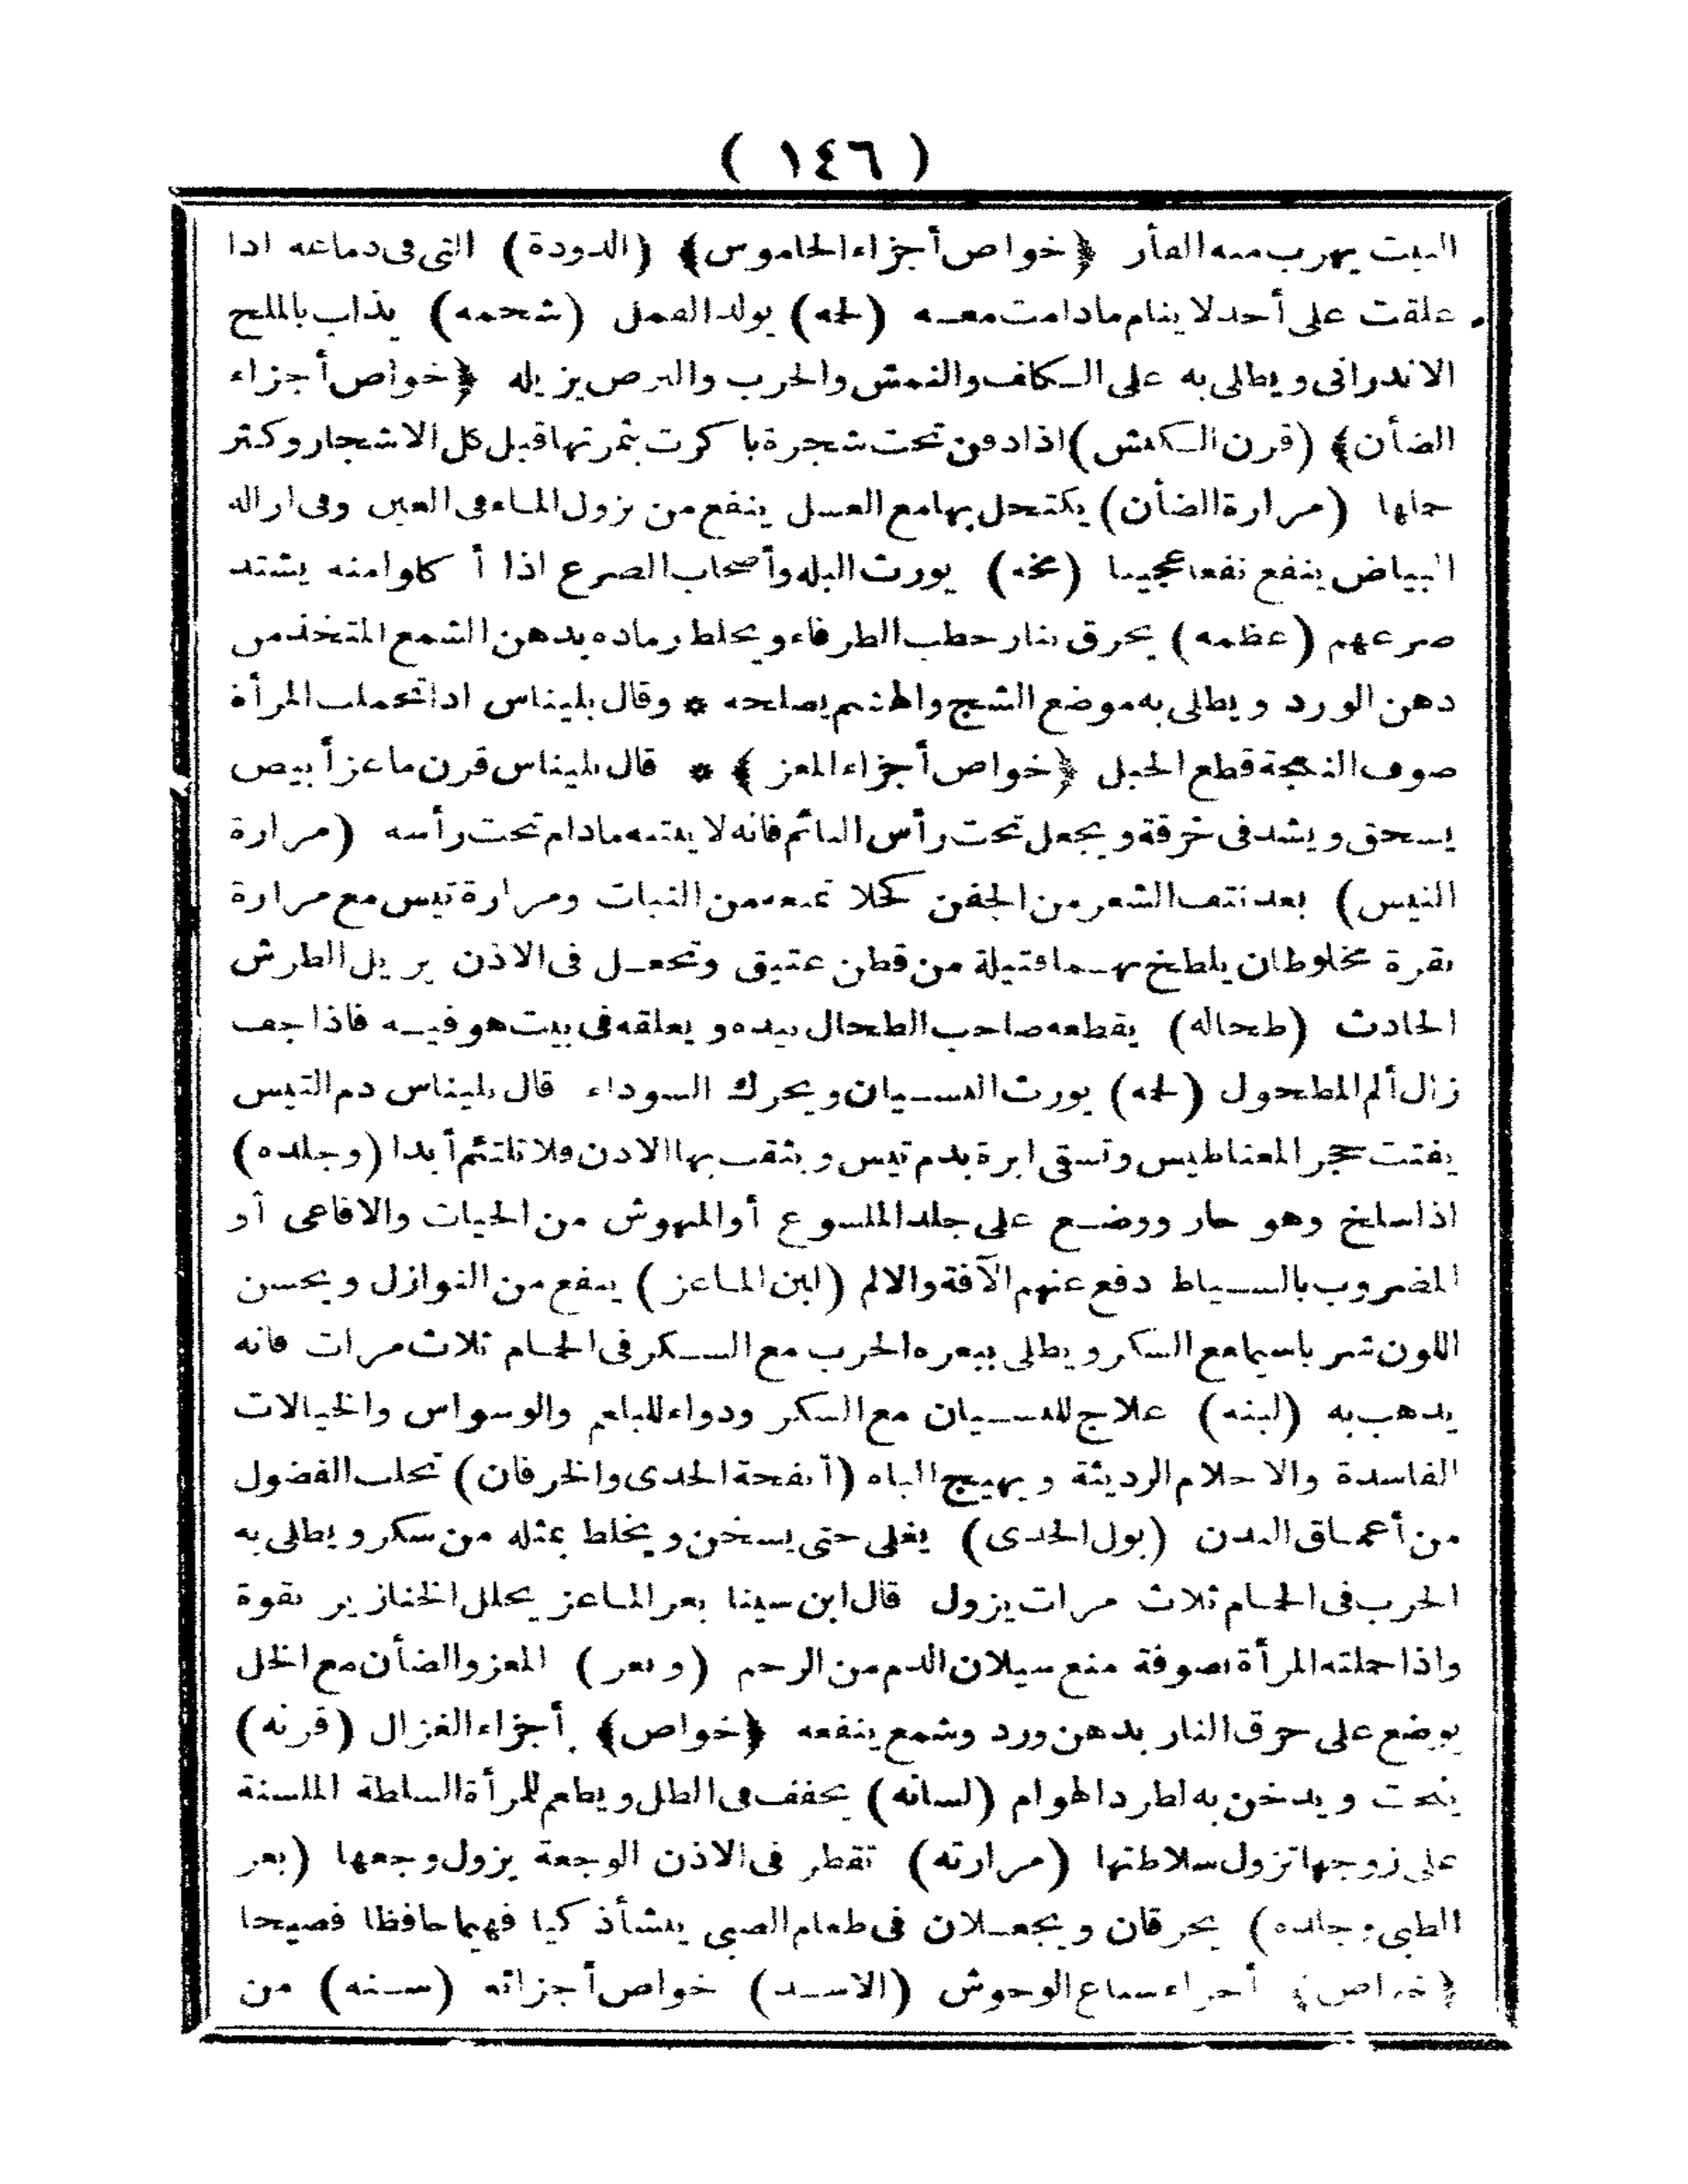 ( ١٤٦ )
البيت يهرب منه الفأر ﴿خواص أجزاء الجاموس﴾ (الدودة) التى فى دماغه اذا
علقت على أحد لا ينام مادامت معه (لحمه) يولد القمل (شحمه) يذاب بالملح
الاندرانى ويطلى به على الكلف والنمش والجرب والبرص يزيله ﴿خواص أجزاء
الضأن﴾ (قرن الكبش) اذا دفن تحت شجرة باكرت ثمرتها قبل كل الاشجار وكثر
حملها (مرارة الضأن) يكتحل بها مع العسل ينفع من نزول الماء فى العين وفى ازالة
البياض ينفع نفعا عجيبا (مخه) يورث البله وأصحاب الصرع اذا أكلوا منه يشتد
صرعهم (عظمه) يحرق بنار حطب الطرفاء ويخلط رماده بدهن الشمع المتخذ من
دهن الورد ويطلى به موضع الشج والهشم يصلحه * وقال بليناس اذا تحملت المرأة
صوف النعجة قطع الحبل ﴿خواص أجزاء المعز﴾ * قال بليناس قرن ماعز أبيض
يسحق ويشد فى خرقة ويجعل تحت رأس النائم فانه لا ينتبه مادام تحت رأسه (مرارة
التيس) بعد نتف الشعر من الجفن كحلا تمنعه من النبات ومرارة تيس مع مرارة
بقرة مخلوطان يلطخ بهما فتيلة من قطن عتيق وتجعل فى الاذن يزيل الطرش
الحادث (طحاله) يقطعه صاحب الطحال بيده ويعلقه فى بيت هو فيه فاذا جف
زال ألم المطحول (لحمه) يورث النسيان ويحرك السوداء قال بليناس دم التيس
يفتت حجر المغناطيس وتسقى ابرة بدم تيس ويثقب بها الاذن فلا تلتئم أبدا (وجلده)
اذا سلخ وهو حار ووضع على جلد الملسوع أو المنهوش من الحيات والافاعى أو
المضروب بالسياط دفع عنهم الآفة والالم (لبن الماعز) ينفع من النوازل ويحسن
اللون شربا سيما مع السكر ويطلى ببعره الجرب مع السكر فى الحمام ثلاث مرات فانه
يذهب به (لبنه) علاج للنسيان مع السكر ودواء للبلغم والوسواس والخيالات
الفاسدة والاحلام الرديئة ويهيج الباه (أنفحة الجدى والخرفان) تجلب الفضول
من أعماق البدن (بول الجدى) يغلى حتى يسخن ويخلط بمثله من سكر ويطلى به
الجرب فى الحمام ثلاث مرات يزول قال ابن سينا بعر الماعز يحلل الخنازير بقوة
واذا حملته المرأة بصوفة منع سيلان الدم من الرحم (وبعر) المعز والضأن مع الخل
يوضع على حرق النار بدهن ورد وشمع ينفعه ﴿خواص﴾ أجزاء الغزال (قرنه)
ينحت ويدخن به لطرد الهوام (لسانه) يجفف فى الظل ويطعم للمرأة السلطة الملسنة
على زوجها تزول سلاطتها (مرارته) تقطر فى الاذن الوجعة يزول وجعها (بعر
الظبى وجلده) يحرقان ويجعلان فى طعام الصبى ينشأ ذكيا فهيما حافظا فصيحا
﴿خواص﴾ أجزاء سباع الوحوش (الاسد) خواص أجزائه (سنه) من